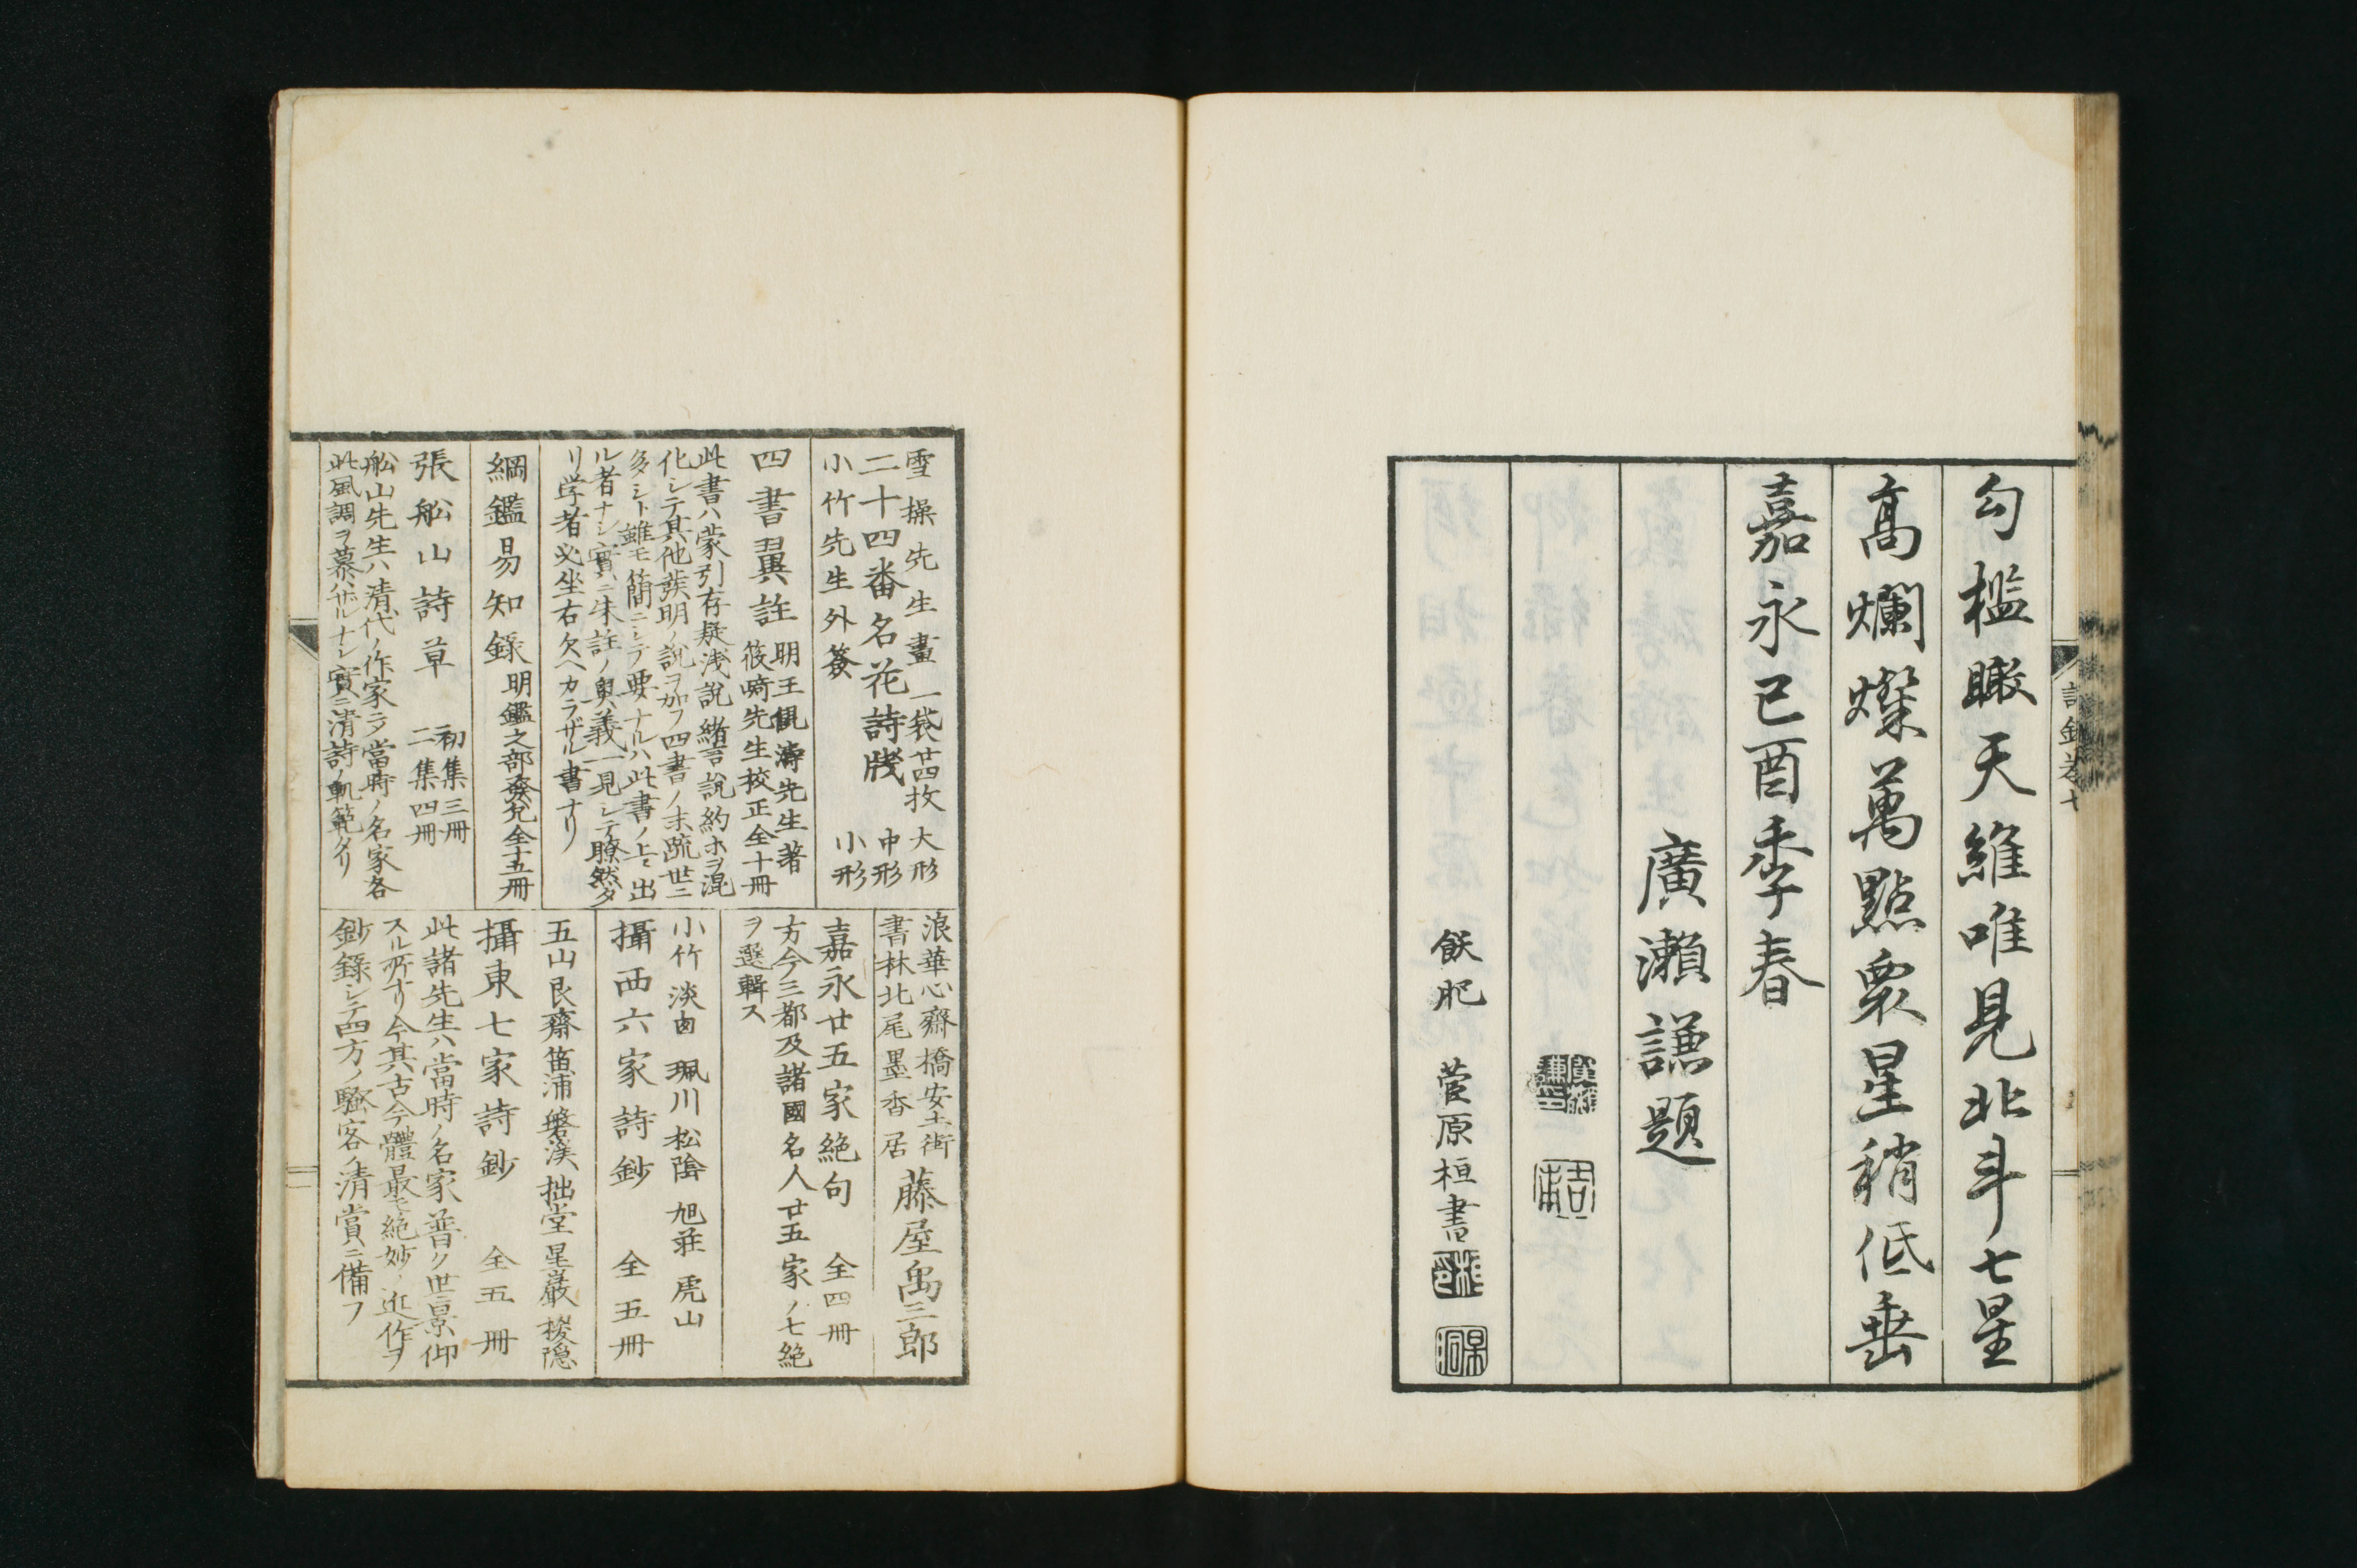 勾檻瞰天維唯見北斗七星
高爛燦萬點眾星稍低垂
嘉永己酉季春
廣瀨謙題
飫肥 菅原桓書
雪操先生畫 一袋廿四枚 大形
二十四番名花詩牋 中形
小竹先生外簽 小形
四書翼註 明王佩濤先生著
筱﨑先生校正全十冊
此書ハ蒙引存疑浅說緒言說約ホヲ混
化シテ其他蔟明ノ說ヲ加フ四書ノ末疏世ニ
多シト雖モ簡ニシテ要ナルハ此書ノ上ニ出
ル者ナシ實ニ朱註ノ奧義一見シテ瞭然タ
リ学者必坐右欠ヘカラザル書ナリ
綱鑑易知錄 明鑑之部發兌全十五冊
張船山詩草 初集三冊
二集四冊
船山先生ハ清代ノ作家ニテ當時ノ名家各
此風調ヲ慕ハザルナシ實ニ清詩ノ軌範タリ
浪華心齋橋安土街
書林北尾墨香居 藤屋禹三郎
嘉永廿五家絶句 全四冊
方今三都及諸國名人廿五家ノ七絶
ヲ選輯ス
小竹 淡囱 珮川 松陰 旭莊 虎山
攝西六家詩鈔 全五冊
五山 艮齋 篁浦 磐溪 拙堂 星巖 梭隱
攝東七家詩鈔 全五冊
此諸先生ハ當時ノ名家普ク世ニ景仰
スル所ナリ今其古今體最モ絶妙ノ近作ヲ
鈔錄シテ四方ノ騷客ノ清賞ニ備フ